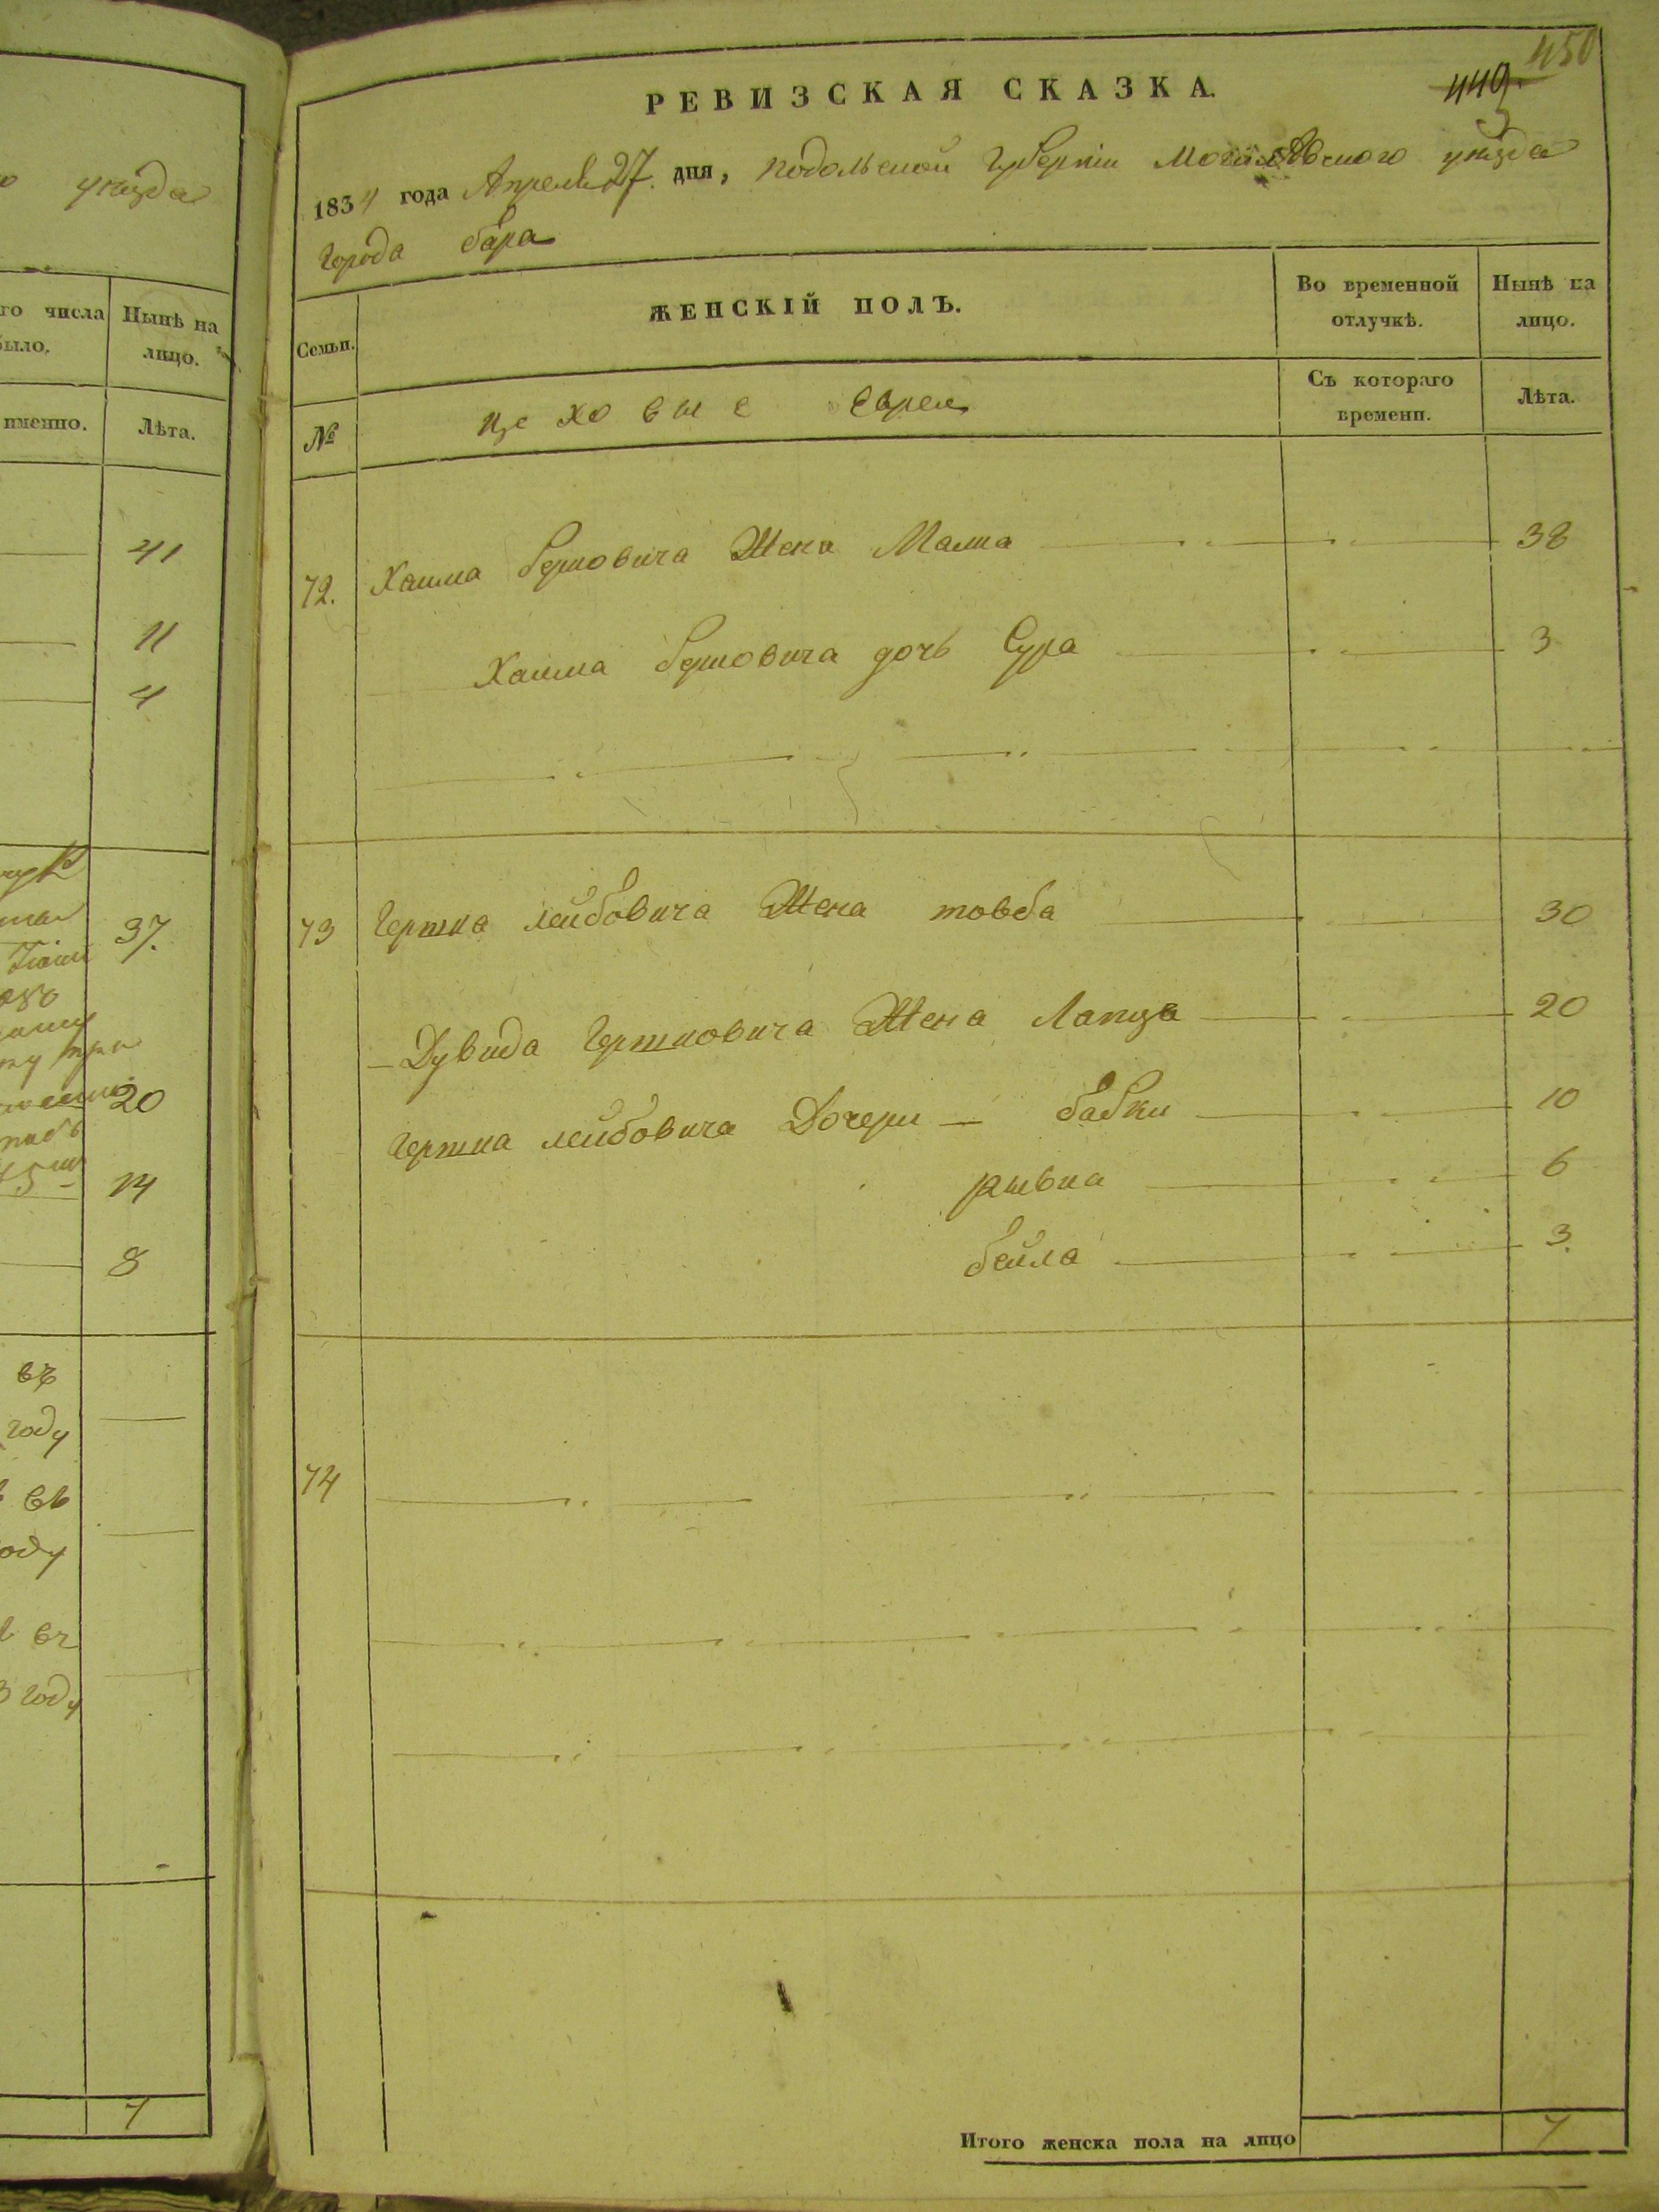 уѣзда
го числа
было.
Нынѣ на
лицо.
именно.
Лѣта.
41
11
4
37.
20
14
8
въ
году
въ
году
въ
3 году
7
450
449.
РЕВИЗСКАЯ СКАЗКА.
1834 года Апреля 27. дня, Подольской Губерніи Могилевского уѣзда
Города Бара
Семьи.
ЖЕНСКІЙ ПОЛЪ.
Во временной
отлучкѣ.
Нынѣ на
лицо.
№
Цеховые Евреи
Съ котораго
времени.
Лѣта.
72. Хаима Берковича Жена Малка 38
Хаима Берковича дочь Сура 3
73 Гершка Лейбовича Жена Товба 30
Дувида Гершковича Жена 20
Гершка Лейбовича Дочери — Бабки 10
Рывка 6
Бейла 3.
74
Итого женска пола на лицо 7